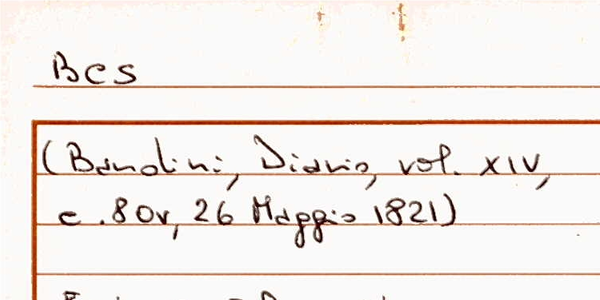 Bcs
(Bandini, Diario, vol. XIV,
c. 80v, 26 Maggio 1821)